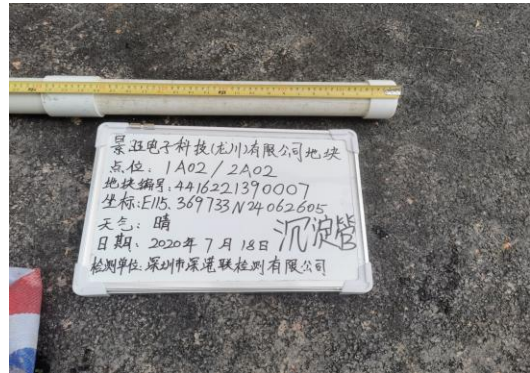 景亚电子科技(龙川)有限公司地块
点位: 1A02/2A02
地块编号: 4416221390007
坐标: E115.369733 N24.062605
天气: 晴
日期: 2020年7月18日
沉淀管
检测单位: 深圳市深港联检测有限公司